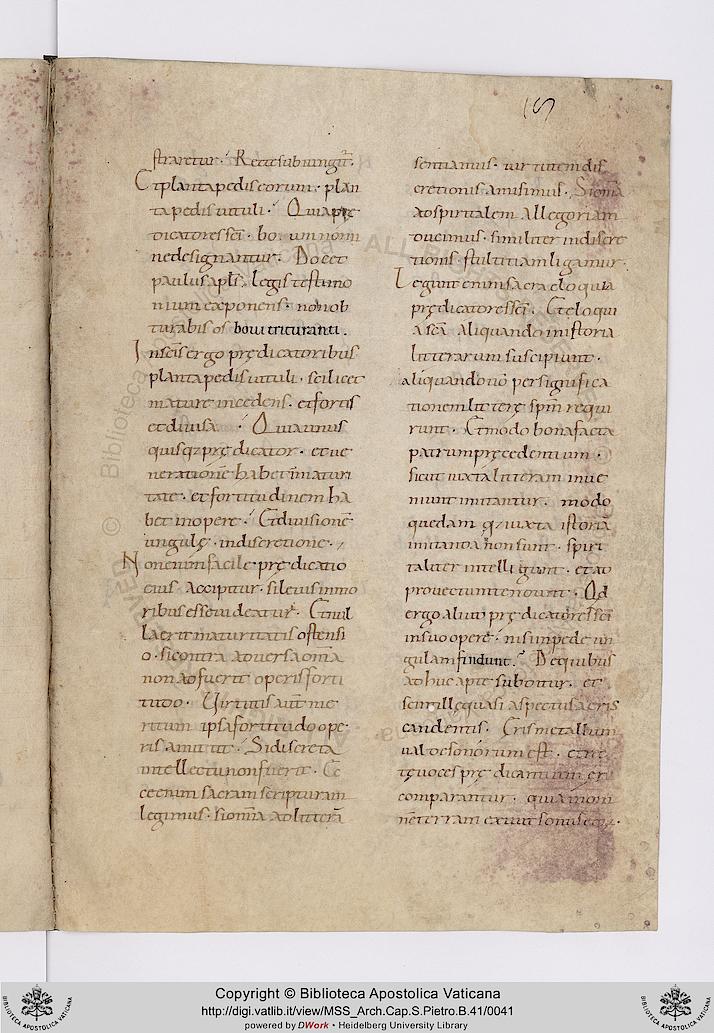 straretur. Recte subiungit̄.
Et planta pedis eorum. plan
ta pedis uituli. Quia prę
dicatores sc̄i. boum nomi
ne designantur. Docet
paulus apl̄s. legis testimo
nium exponens. non ob
turabis os boui trituranti.
In sc̄is ergo prędicatoribus
planta pedis uituli. scilicet
mature incedens. et fortis
et diuisa. Quia unus
quisq; prędicator. et ue
nerationē habet in maturi
tate. et fortitudinem ha
bet in opere. Et diuisionē
ungulę. in discretione.
Non enim facile prędicatio
eius accipitur. si leuis in mo
ribus esse uideatur. Et nul
la erit maturitatis ostensi
o. si contra aduersa om̄ia
non adfuerit operis forti
tudo. Uirtutis aut̄ me
ritum ipsa fortitudo ope
ris amittit. Si discreta
intellectu non fuerit. Ec
ce enim sacram scripturam
legimus. si om̄ia ad litterā
sentiamus. uirtutem dis
cretionis amisimus. Si om̄ia
ad spiritalem allegoriam
ducimus. similiter indiscre
tionis stultitia ligamur.
Legunt enim sacra eloquia
prędicatores sc̄i. Et eloqui
a sc̄a aliquando in istoria
litterarum suscipiunt.
aliquando uō per significa
tionem litterę sp̄m requi
runt. Et modo bona facta
patrum pręcedentium.
sicut iuxta literam inue
niunt imitantur. modo
quedam q; iuxta istoriā
imitanda non sunt. spiri
taliter intelligunt. et ad
prouectum tendunt. Qd
ergo aliud prędicatores sc̄i
in suo opere. nisi in pede un
gulam findunt. De quibus
adhuc apte subditur. et
scintillę quasi aspectus aeris
candentis. Eris metallum
ualde sonorum est. et rec
tę uoces prędicantium eri
comparantur. quia in om
nē terram exiuit sonus eorum.